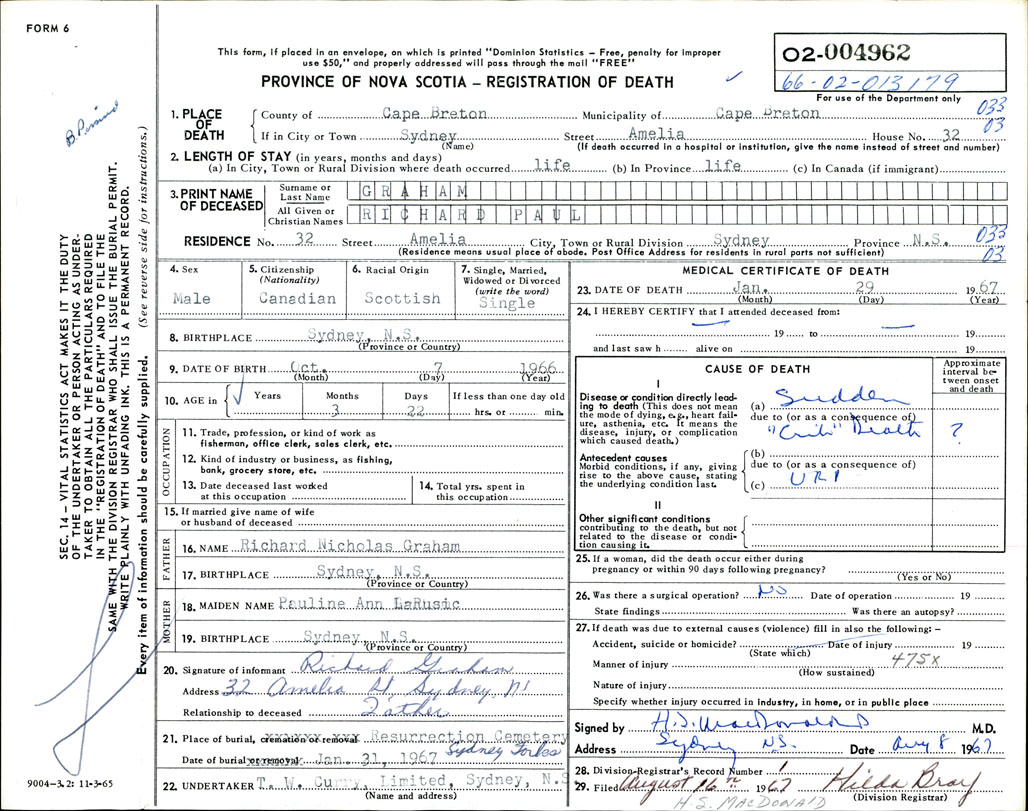 FORM 6
This form, if placed in an envelope, on which is printed "Dominion Statistics – Free, penalty for improper
use $50," and properly addressed will pass through the mail "FREE"
PROVINCE OF NOVA SCOTIA – REGISTRATION OF DEATH
02-004962
66-02-013179
For use of the Department only
SEC. 14 – VITAL STATISTICS ACT MAKES IT THE DUTY
OF THE UNDERTAKER OR PERSON ACTING AS UNDER-
TAKER TO OBTAIN ALL THE PARTICULARS REQUIRED
IN THE "REGISTRATION OF DEATH" AND TO FILE THE
SAME WITH THE DIVISION REGISTRAR WHO SHALL ISSUE THE BURIAL PERMIT.
WRITE PLAINLY WITH UNFADING INK. THIS IS A PERMANENT RECORD.
Every item of information should be carefully supplied. (See reverse side for instructions.)
1. PLACE OF DEATH
County of Cape Breton Municipality of Cape Breton 033
If in City or Town Sydney Street Amelia House No. 32 03
(Name) (If death occurred in a hospital or institution, give the name instead of street and number)
2. LENGTH OF STAY (in years, months and days)
(a) In City, Town or Rural Division where death occurred life (b) In Province life (c) In Canada (if immigrant)
3. PRINT NAME OF DECEASED
Surname or Last Name GRAHAM
All Given or Christian Names RICHARD PAUL
RESIDENCE No. 32 Street Amelia City, Town or Rural Division Sydney Province N.S. 033
(Residence means usual place of abode. Post Office Address for residents in rural parts not sufficient) 03
4. Sex
Male
5. Citizenship
(Nationality)
Canadian
6. Racial Origin
Scottish
7. Single, Married,
Widowed or Divorced
(write the word)
Single
8. BIRTHPLACE Sydney, N.S.
(Province or Country)
9. DATE OF BIRTH Oct. 7 1966
(Month) (Day) (Year)
10. AGE in Years Months Days If less than one day old
3 22 hrs. or min.
OCCUPATION
11. Trade, profession, or kind of work as
fisherman, office clerk, sales clerk, etc.
12. Kind of industry or business, as fishing,
bank, grocery store, etc.
13. Date deceased last worked
at this occupation
14. Total yrs. spent in
this occupation
15. If married give name of wife
or husband of deceased
FATHER
16. NAME Richard Nicholas Graham
17. BIRTHPLACE Sydney, N.S.
(Province or Country)
MOTHER
18. MAIDEN NAME Pauline Ann LaRusic
19. BIRTHPLACE Sydney, N.S.
(Province or Country)
20. Signature of informant Richard Graham
Address 32 Amelia St, Sydney, NS
Relationship to deceased Father
21. Place of burial, cremation or removal Resurrection Cemetery
Sydney Forks
Date of burial or removal Jan. 31, 1967
22. UNDERTAKER T. W. Curry, Limited, Sydney, N.S
(Name and address)
MEDICAL CERTIFICATE OF DEATH
23. DATE OF DEATH Jan. 29 1967
(Month) (Day) (Year)
24. I HEREBY CERTIFY that I attended deceased from:
19 to 19
and last saw h alive on 19
CAUSE OF DEATH
Approximate
interval be-
tween onset
and death
I
Disease or condition directly lead-
ing to death (This does not mean
the mode of dying, e.g., heart fail-
ure, asthenia, etc. It means the
disease, injury, or complication
which caused death.)
(a) Sudden
due to (or as a consequence of)
"Crib" Death ?
Antecedent causes
Morbid conditions, if any, giving
rise to the above cause, stating
the underlying condition last.
(b)
due to (or as a consequence of)
(c) URI
II
Other significant conditions
contributing to the death, but not
related to the disease or condi-
tion causing it.
25. If a woman, did the death occur either during
pregnancy or within 90 days following pregnancy?
(Yes or No)
26. Was there a surgical operation? No Date of operation 19
State findings Was there an autopsy?
27. If death was due to external causes (violence) fill in also the following: –
Accident, suicide or homicide? Date of injury 19
(State which) 475X
Manner of injury
(How sustained)
Nature of injury
Specify whether injury occurred in industry, in home, or in public place
Signed by H.S. MacDonald M.D.
Address Sydney N.S. Date Aug 8 1967
28. Division Registrar's Record Number 1
29. Filed August 16th 1967 Hilda Bray
(Division Registrar)
H.S. MACDONALD
9004-3.2: 11-3-65